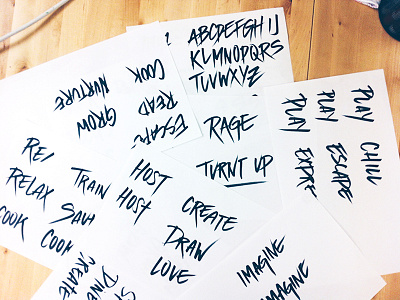 ABCDEFGHIJ
KLMNOPQRS
TUVWXYZ
COOK
NURTURE
READ
GROW
RAGE
TURNT UP
PLAY
PLAY
PLAY
CHILL
ESCAPE
RELAX
TRAIN
HOST
HOST
COOK
COOK
CREATE
DRAW
LOVE
CREATE
IMAGINE
IMAGINE